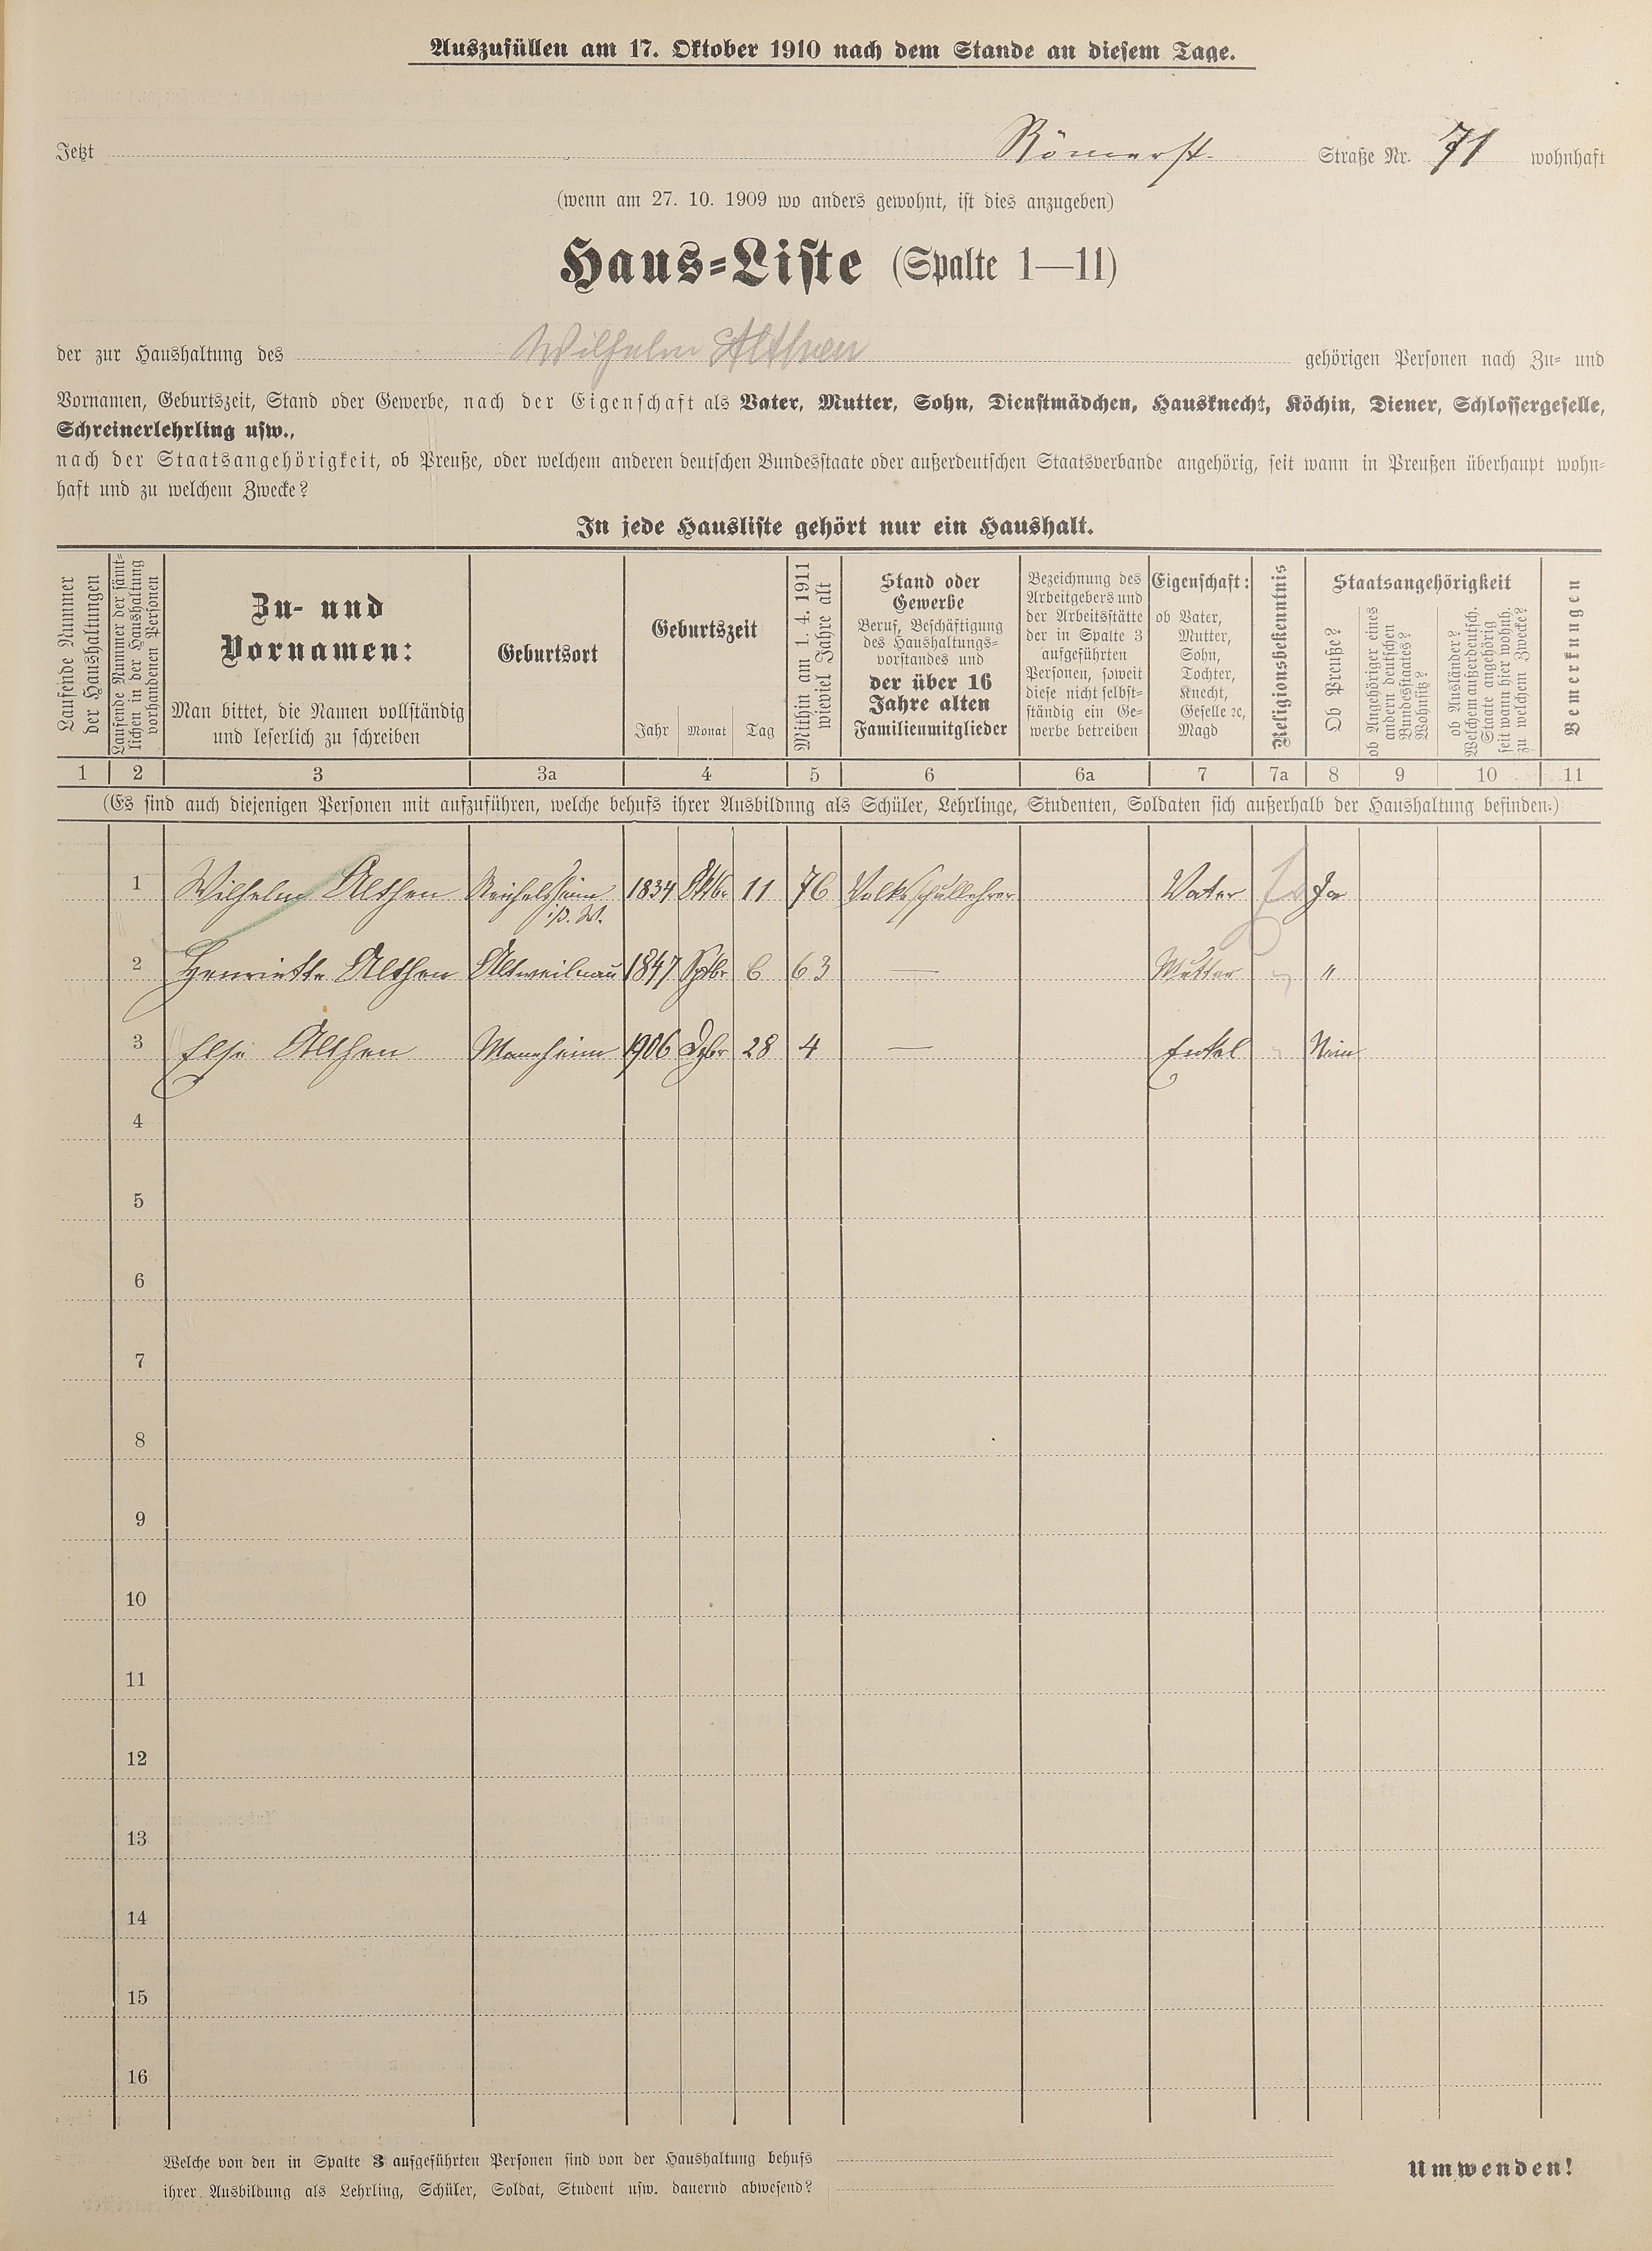 Auszufüllen am 17. Oktober 1910 nach dem Stande an diesem Tage.
Jetzt Römerst. Straße Nr. 71 wohnhaft
(wenn am 27. 10. 1909 wo anders gewohnt, ist dies anzugeben)
Haus-Liste (Spalte 1—11)
der zur Haushaltung des Wilhelm Althen gehörigen Personen nach Zu- und
Vornamen, Geburtszeit, Stand oder Gewerbe, nach der Eigenschaft als Vater, Mutter, Sohn, Dienstmädchen, Hausknecht, Köchin, Diener, Schlossergeselle,
Schreinerlehrling usw.,
nach der Staatsangehörigkeit, ob Preuße, oder welchem anderen deutschen Bundesstaate oder außerdeutschen Staatsverbande angehörig, seit wann in Preußen überhaupt wohn-
haft und zu welchem Zwecke?
In jede Hausliste gehört nur ein Haushalt.
Laufende Nummer
der Haushaltungen
Laufende Nummer der sämt-
lichen in der Haushaltung
vorhandenen Personen
Zu- und
Vornamen:
Man bittet, die Namen vollständig
und leserlich zu schreiben
Geburtsort
Geburtszeit
Jahr Monat Tag
Mithin am 1. 4. 1911
wieviel Jahre alt
Stand oder
Gewerbe
Beruf, Beschäftigung
des Haushaltungs-
vorstandes und
der über 16
Jahre alten
Familienmitglieder
Bezeichnung des
Arbeitgebers und
der Arbeitsstätte
der in Spalte 3
aufgeführten
Personen, soweit
diese nicht selbst-
ständig ein Ge-
werbe betreiben
Eigenschaft:
ob Vater,
Mutter,
Sohn,
Tochter,
Knecht,
Geselle ec,
Magd
Religionsbekenntnis
Staatsangehörigkeit
Ob Preuße?
ob Angehöriger eines
andern deutschen
Bundesstaates?
Wohnsitz?
ob Ausländer?
Welchem außerdeutsch.
Staate angehörig
seit wann hier wohnh.
zu welchem Zwecke?
Bemerkungen
1 2 3 3a 4 5 6 6a 7 7a 8 9 10 11
(Es sind auch diejenigen Personen mit aufzuführen, welche behufs ihrer Ausbildung als Schüler, Lehrlinge, Studenten, Soldaten sich außerhalb der Haushaltung befinden.)
1 Wilhelm Althen Reichelsheim 1834 Oktbr 11 76 Volksschullehrer Vater Ja
i/d. W.
2 Henriette Althen Altweilnau 1847 Sptbr 6 63 — Mutter " "
3 Else Althen Mannheim 1906 Dzbr 28 4 — Enkel " Nein
4
5
6
7
8
9
10
11
12
13
14
15
16
Welche von den in Spalte 3 aufgeführten Personen sind von der Haushaltung behufs
ihrer Ausbildung als Lehrling, Schüler, Soldat, Student usw. dauernd abwesend?
Umwenden!